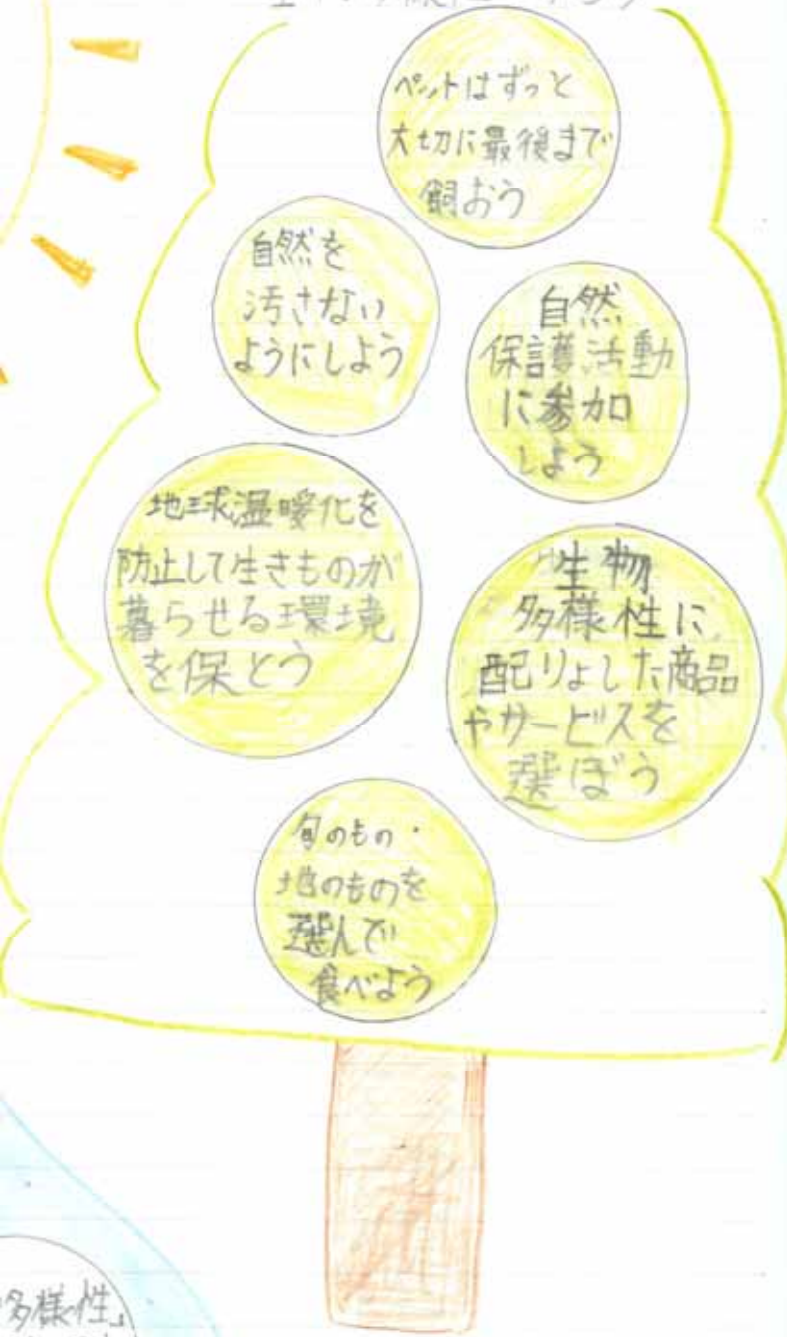 ペットはずっと
大切に最後まで
飼おう
自然を
汚さない
ようにしよう
自然
保護活動
に参加
しよう
地球温暖化を
防止して生きものが
暮らせる環境
を保とう
生物
多様性に
配りょした商品
やサービスを
選ぼう
旬のもの・
地のものを
選んで
食べよう
多様性」